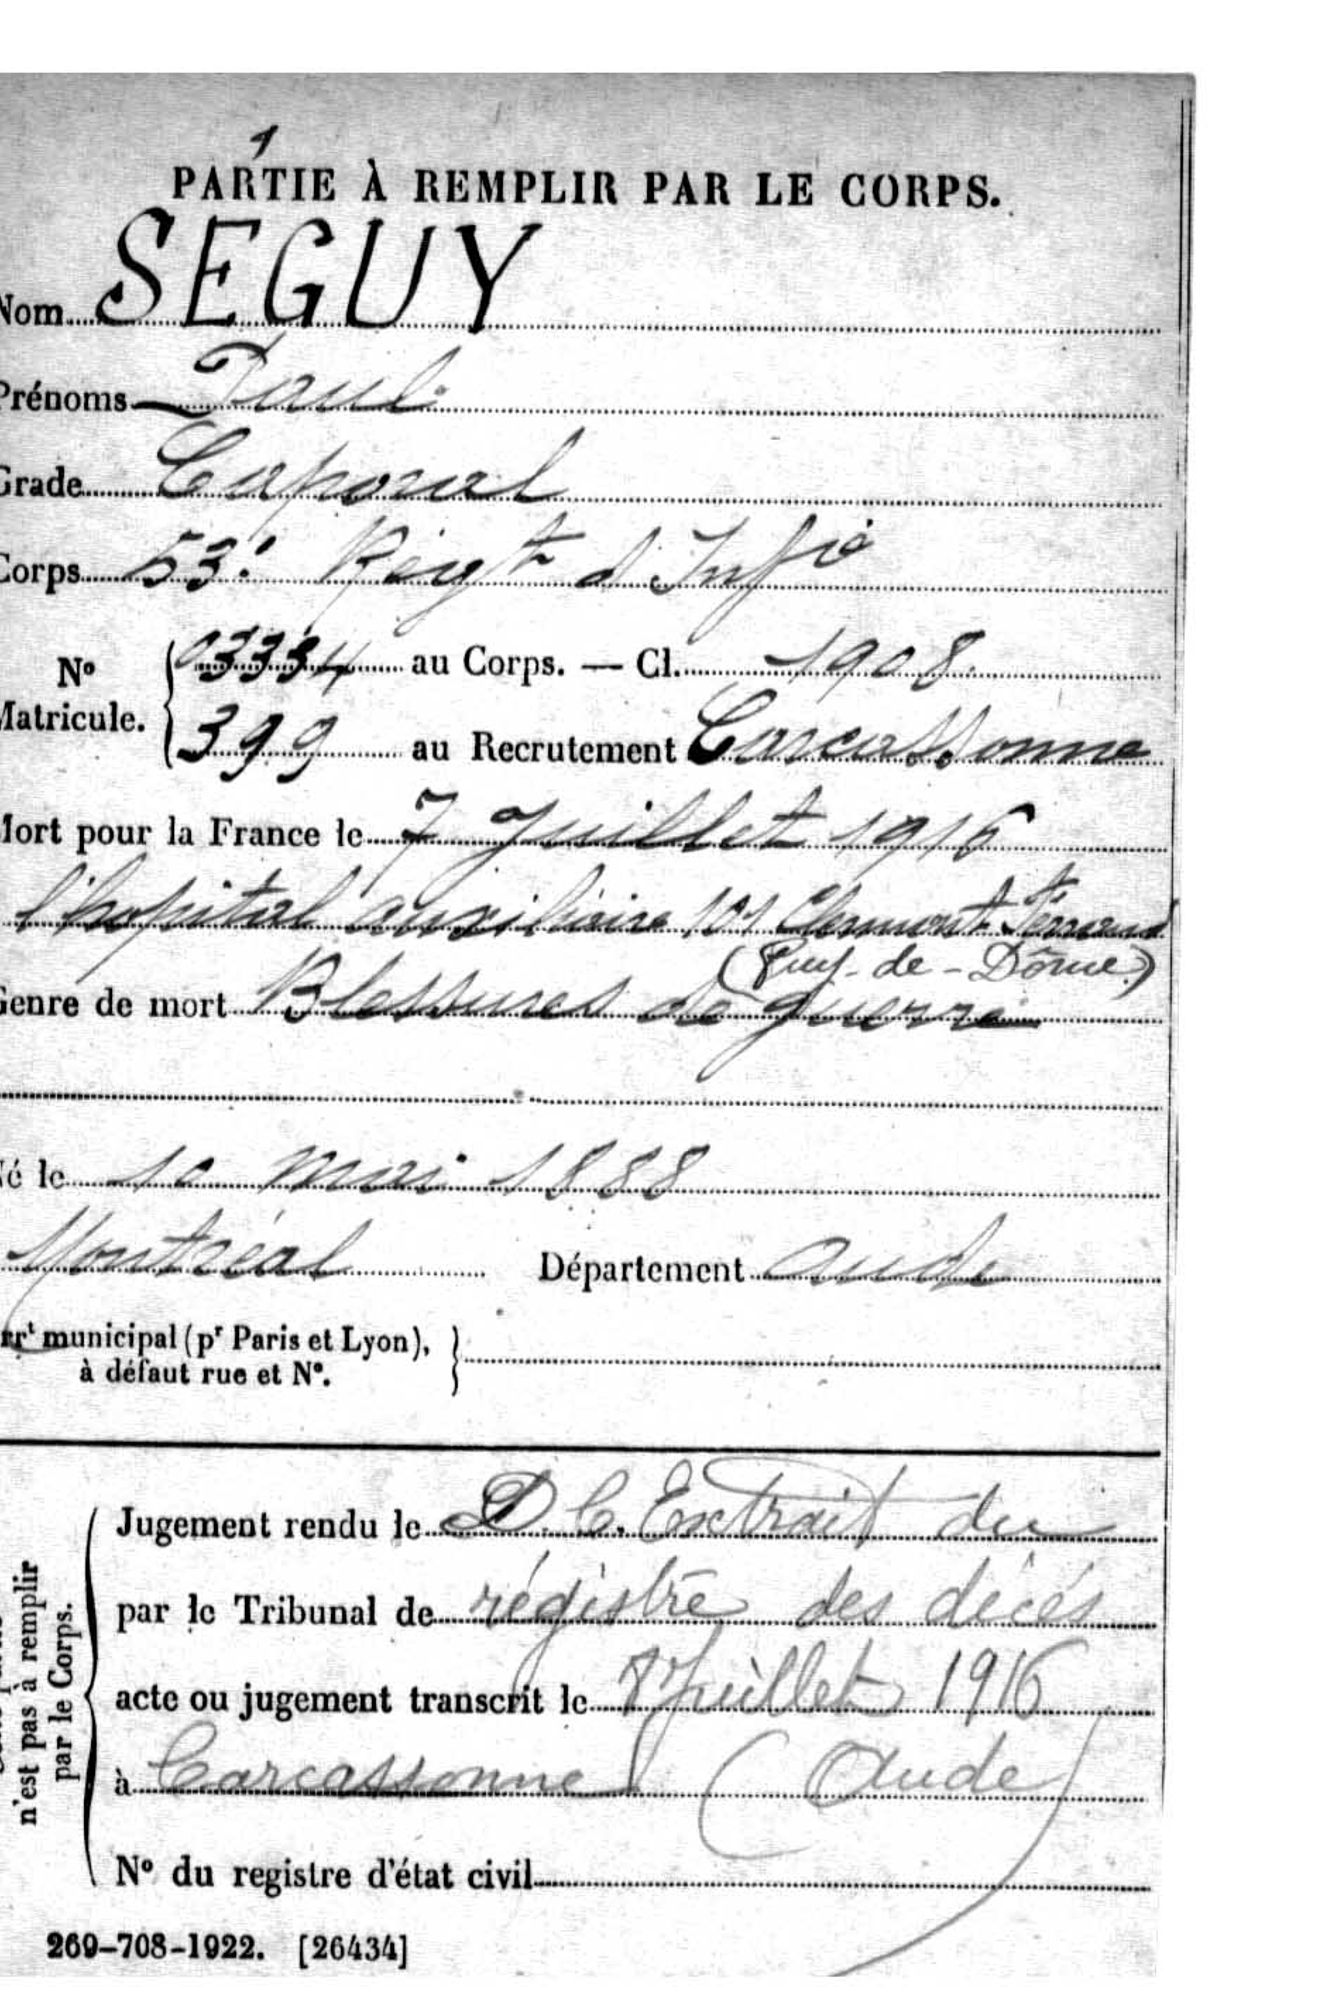 1
PARTIE À REMPLIR PAR LE CORPS.
Nom SEGUY
Prénoms Paul
Grade Caporal
Corps 53e Régt d'Infie
No 03334 au Corps. — Cl. 1908
Matricule. 399 au Recrutement Carcassonne
Mort pour la France le 7 Juillet 1916
l'hopital auxiliaire 101 Clermont Ferrand
(Puy-de-Dôme)
Genre de mort Blessures de guerre
Né le 10 Mai 1888
Montréal Département Aude
arrt municipal (pr Paris et Lyon),
à défaut rue et No.
Jugement rendu le D.C. Extrait du
par le Tribunal de régistre des décés
acte ou jugement transcrit le 8 Juillet 1916
à Carcassonne (Aude)
No du registre d'état civil
n'est pas à remplir
par le Corps.
269-708-1922. [26434]